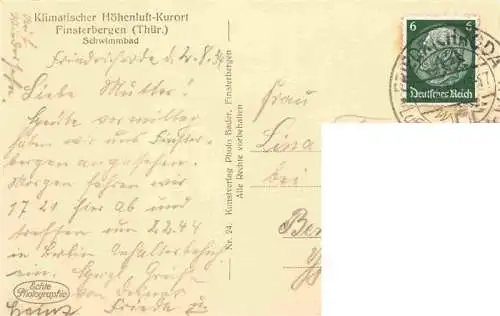 Klimatischer Höhenluft-Kurort
Finsterbergen (Thür.)
Schwimmbad
Friedrichroda d. 2.8.34
Liebe Mutter!
Heute vormittag
haben wir uns Finster-
bergen angesehen.
Morgen fahren wir
17 21 hier ab und
treffen um 22 44
in Berlin Anhalterbahnhof
ein. Herzl. Grüße
von Deiner
Frieda u.
Heinz
Echte
Photographie
Nr. 24. Kunstverlag Photo Bader, Finsterbergen
Alle Rechte vorbehalten
Frau
Lina
bei
6 6
Deutsches Reich